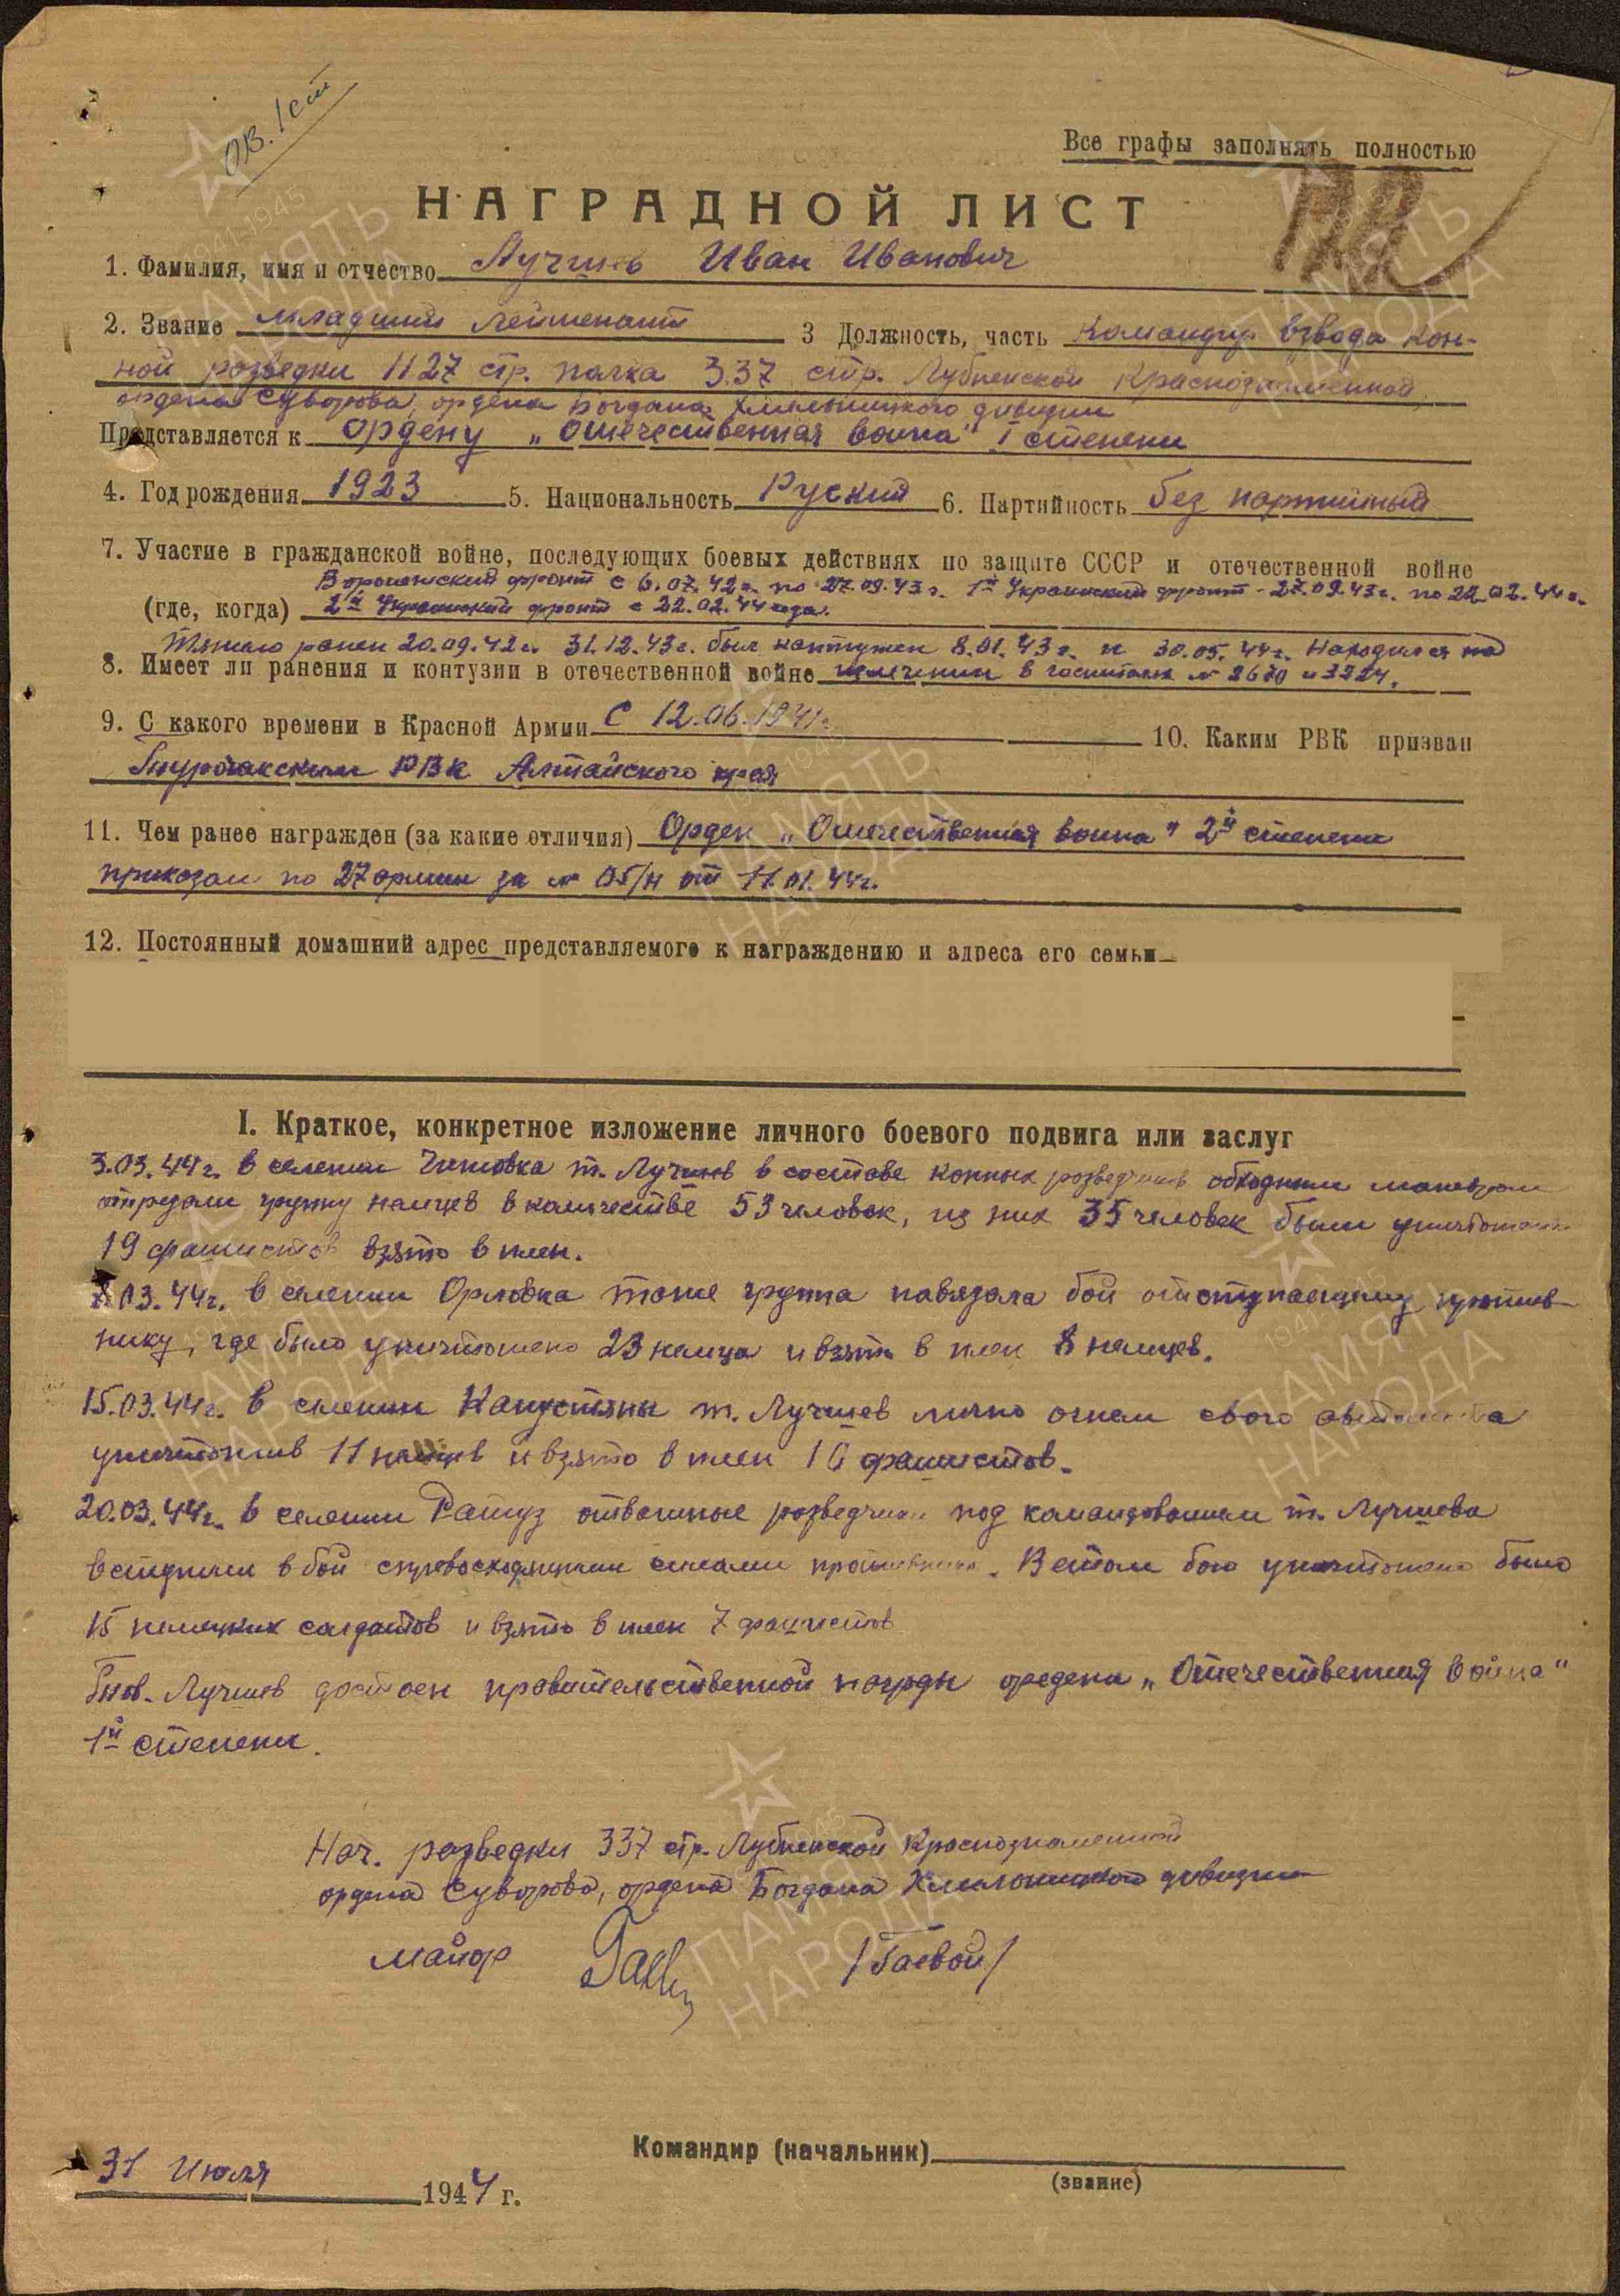 ОВ. 1 ст
Все графы заполнять полностью
НАГРАДНОЙ ЛИСТ
1. Фамилия, имя и отчество Лучшев Иван Иванович
2. Звание младший лейтенант 3 Должность, часть Командир взвода кон-
ной розведки 1127 стр. полка 337 стр. Лубненской Краснознаменной
ордена Суворова, ордена Богдана Хмельницкого дивизии
Представляется к ордену „Отечественная война" I степени
4. Год рождения 1923 5. Национальность Руский 6. Партийность без партийный
7. Участие в гражданской войне, последующих боевых действиях по защите СССР и отечественной войне
Воронежский фронт с 6.07.42г. по 27.09.43г. 1й Украинский фронт - 27.09.43г. по 22.02.44г.
(где, когда) 2й Украинский фронт с 22.02.44 года.
Тяжело ранен 20.09.42г. 31.12.43г. был контужен 8.01.43г. и 30.05.44г. Находился на
8. Имеет ли ранения и контузии в отечественной войне излечении в госпитале № 2670 и 3224.
9. С какого времени в Красной Армии С 12.06.1941г. 10. Каким РВК призван
Турочакским РВК Алтайского края
11. Чем ранее награжден (за какие отличия) Орден „Отечественная война" 2й степени
приказом по 27 армии за № 05/н от 11.01.44г.
12. Постоянный домашний адрес представляемого к награждению и адреса его семьи
I. Краткое, конкретное изложение личного боевого подвига или заслуг
3.03.44г. в селении Чижовка т. Лучшев в составе конных розведчиков обходным маневром
отрезали группу немцев в количестве 53 человек, из них 35 человек были уничтожены
19 фашистов взято в плен.
03.44г. в селении Орловка тоже группа навязала бой отступающему против-
нику, где было уничтожено 23 немца и взято в плен 8 немцев.
15.03.44г. в селении Капустяны т. Лучшев лично огнем свого автомата
уничтожив 11 немцев и взято в плен 10 фашистов.
20.03.44г. в селении Ратуз отважные розведчики под командованием т. Лучшева
вступили в бой с превосходящими силами противника. В етом бою уничтожено было
15 немецких солдатов и взято в плен 7 фашистов
Тов. Лучшев достоен правительственной награды ордена „Отечественная война"
1й степени.
Нач. розведки 337 стр. Лубненской Краснознаменной
ордена Суворова, ордена Богдана Хмельницкого дивизии
майор /Гаевой/
Командир (начальник)
(звание)
31 Июля 1944 г.
ПАМЯТЬ НАРОДА
1941-1945